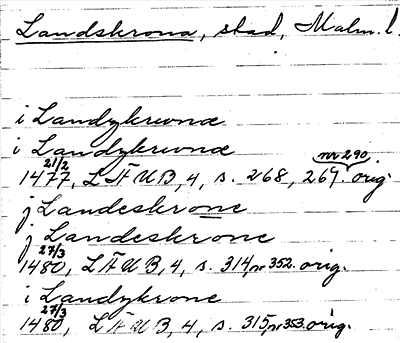 Landskrona, stad, Malm. l.
i Landzkrvnæ
i Landzkrvnæ
21/2 nr 290
1477, LÄUB, 4, s. 268, 269. orig.
j Landeskrone
j Landeskrone
27/3
1480, LÄUB, 4, s. 314, nr 352. orig.
i Landzkrone
27/3
1480, LÄUB, 4, s. 315, nr 353. orig.